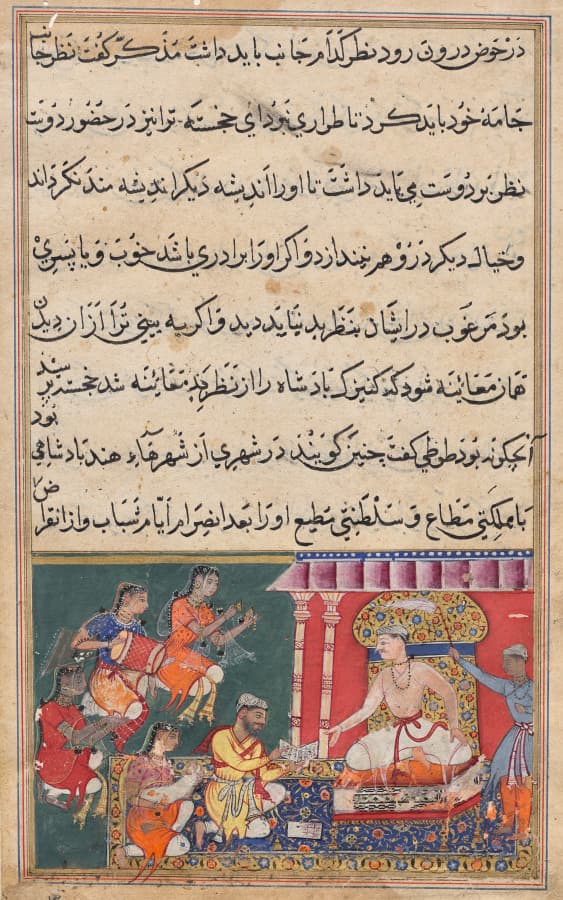 در حوض درون رود نظر کدام جانب باید داشت مذکر گفت نظر جانب
جامهٔ خود باید کرد تا طراری نبود ای خجسته ترا نیز در حضور دوست
نظر بر دوست می باید داشت تا او را اندیشه دیگر اندیشه مند نکرداند
و خیال دیگر در وهم نیندازد و اکر او را برادری باشد خوب و یا پسری
بود مرغوب در ایشان بنظر بد نیاید دید و اکر به بینی ترا از آن دیدن
همان معاینه شود که کنیزک بادشاه را از نظر بد معاینه شد خجسته پرسید
آنچکونه بود طوطی گفت چنین کویند در شهری از شهرهاء هند بادشاهی بود
با مملکتی مطاع و سلطنتی مطیع او را بعد انصرام ایام شباب و از انقراض